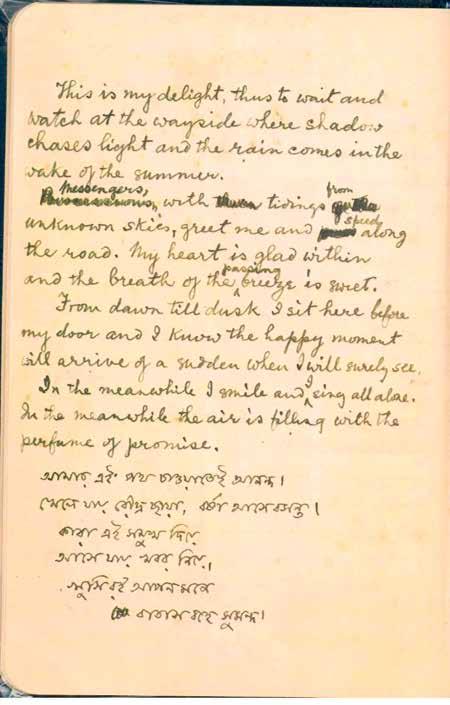 This is my delight, thus to wait and
watch at the wayside where shadow
chases light and the rain comes in the
wake of the summer.
Messengers, with tidings from
unknown skies, greet me and speed along
the road. My heart is glad within
and the breath of the passing breeze is sweet.
From dawn till dusk I sit here before
my door and I know the happy moment
will arrive of a sudden when I will surely see.
In the meanwhile I smile and I sing all alone.
In the meanwhile the air is filling with the
perfume of promise.
আমার এই পথ চাওয়াতেই আনন্দ।
খেলে যায় রৌদ্র ছায়া, বর্ষা আসে বসন্ত।
কারা এই সমুখ দিয়ে
আসে যায় খবর নিয়ে,
খুসি রই আপন মনে
বাতাস বহে সুমন্দ।